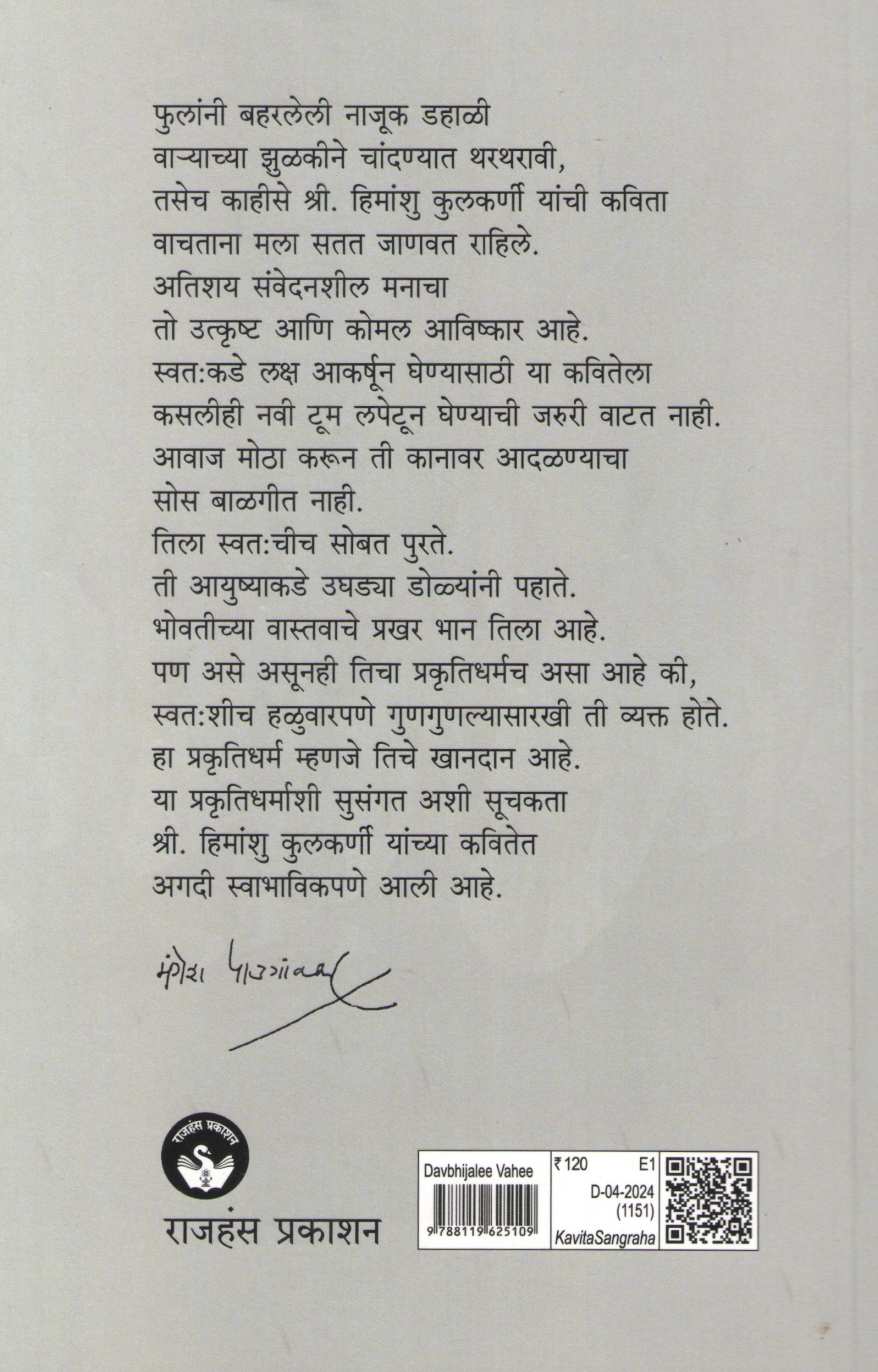 फुलांनी बहरलेली नाजूक डहाळी
वाऱ्याच्या झुळकीने चांदण्यात थरथरावी,
तसेच काहीसे श्री. हिमांशु कुलकर्णी यांची कविता
वाचताना मला सतत जाणवत राहिले.
अतिशय संवेदनशील मनाचा
तो उत्कृष्ट आणि कोमल आविष्कार आहे.
स्वतःकडे लक्ष आकर्षून घेण्यासाठी या कवितेला
कसलीही नवी टूम लपेटून घेण्याची जरुरी वाटत नाही.
आवाज मोठा करून ती कानावर आदळण्याचा
सोस बाळगीत नाही.
तिला स्वतःचीच सोबत पुरते.
ती आयुष्याकडे उघड्या डोळ्यांनी पहाते.
भोवतीच्या वास्तवाचे प्रखर भान तिला आहे.
पण असे असूनही तिचा प्रकृतिधर्मच असा आहे की,
स्वतःशीच हळुवारपणे गुणगुणल्यासारखी ती व्यक्त होते.
हा प्रकृतिधर्म म्हणजे तिचे खानदान आहे.
या प्रकृतिधर्माशी सुसंगत अशी सूचकता
श्री. हिमांशु कुलकर्णी यांच्या कवितेत
अगदी स्वाभाविकपणे आली आहे.
मंगेश पाडगांवकर
राजहंस प्रकाशन
राजहंस प्रकाशन
Davbhijalee Vahee
9 788119 625109
₹120 E1
D-04-2024
(1151)
KavitaSangraha